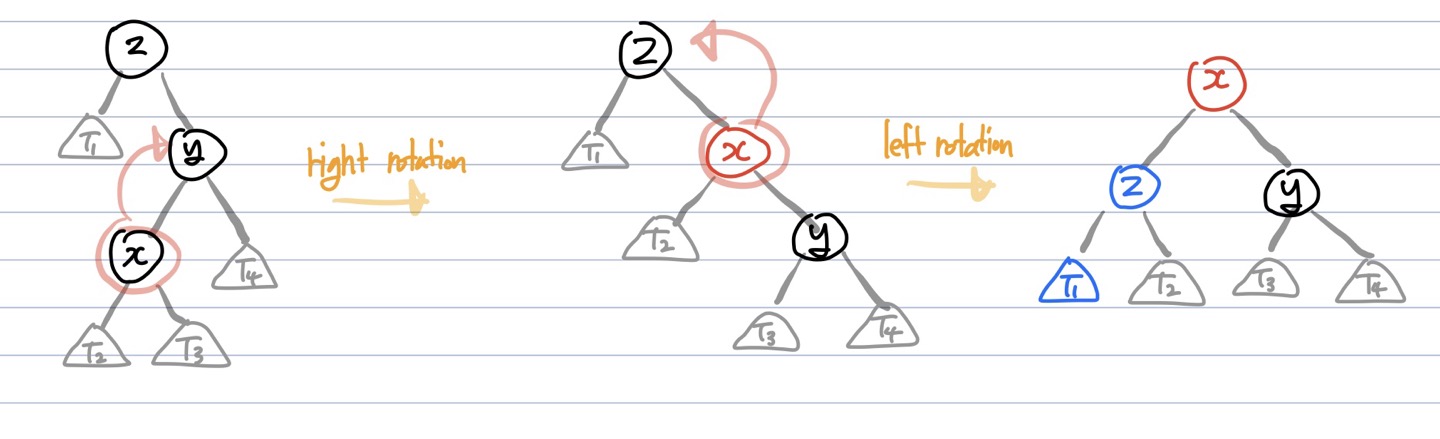 z
T₁
y
x
T₄
T₂
T₃
right rotation
z
T₁
x
T₂
y
T₃
T₄
left rotation
x
z
y
T₁
T₂
T₃
T₄